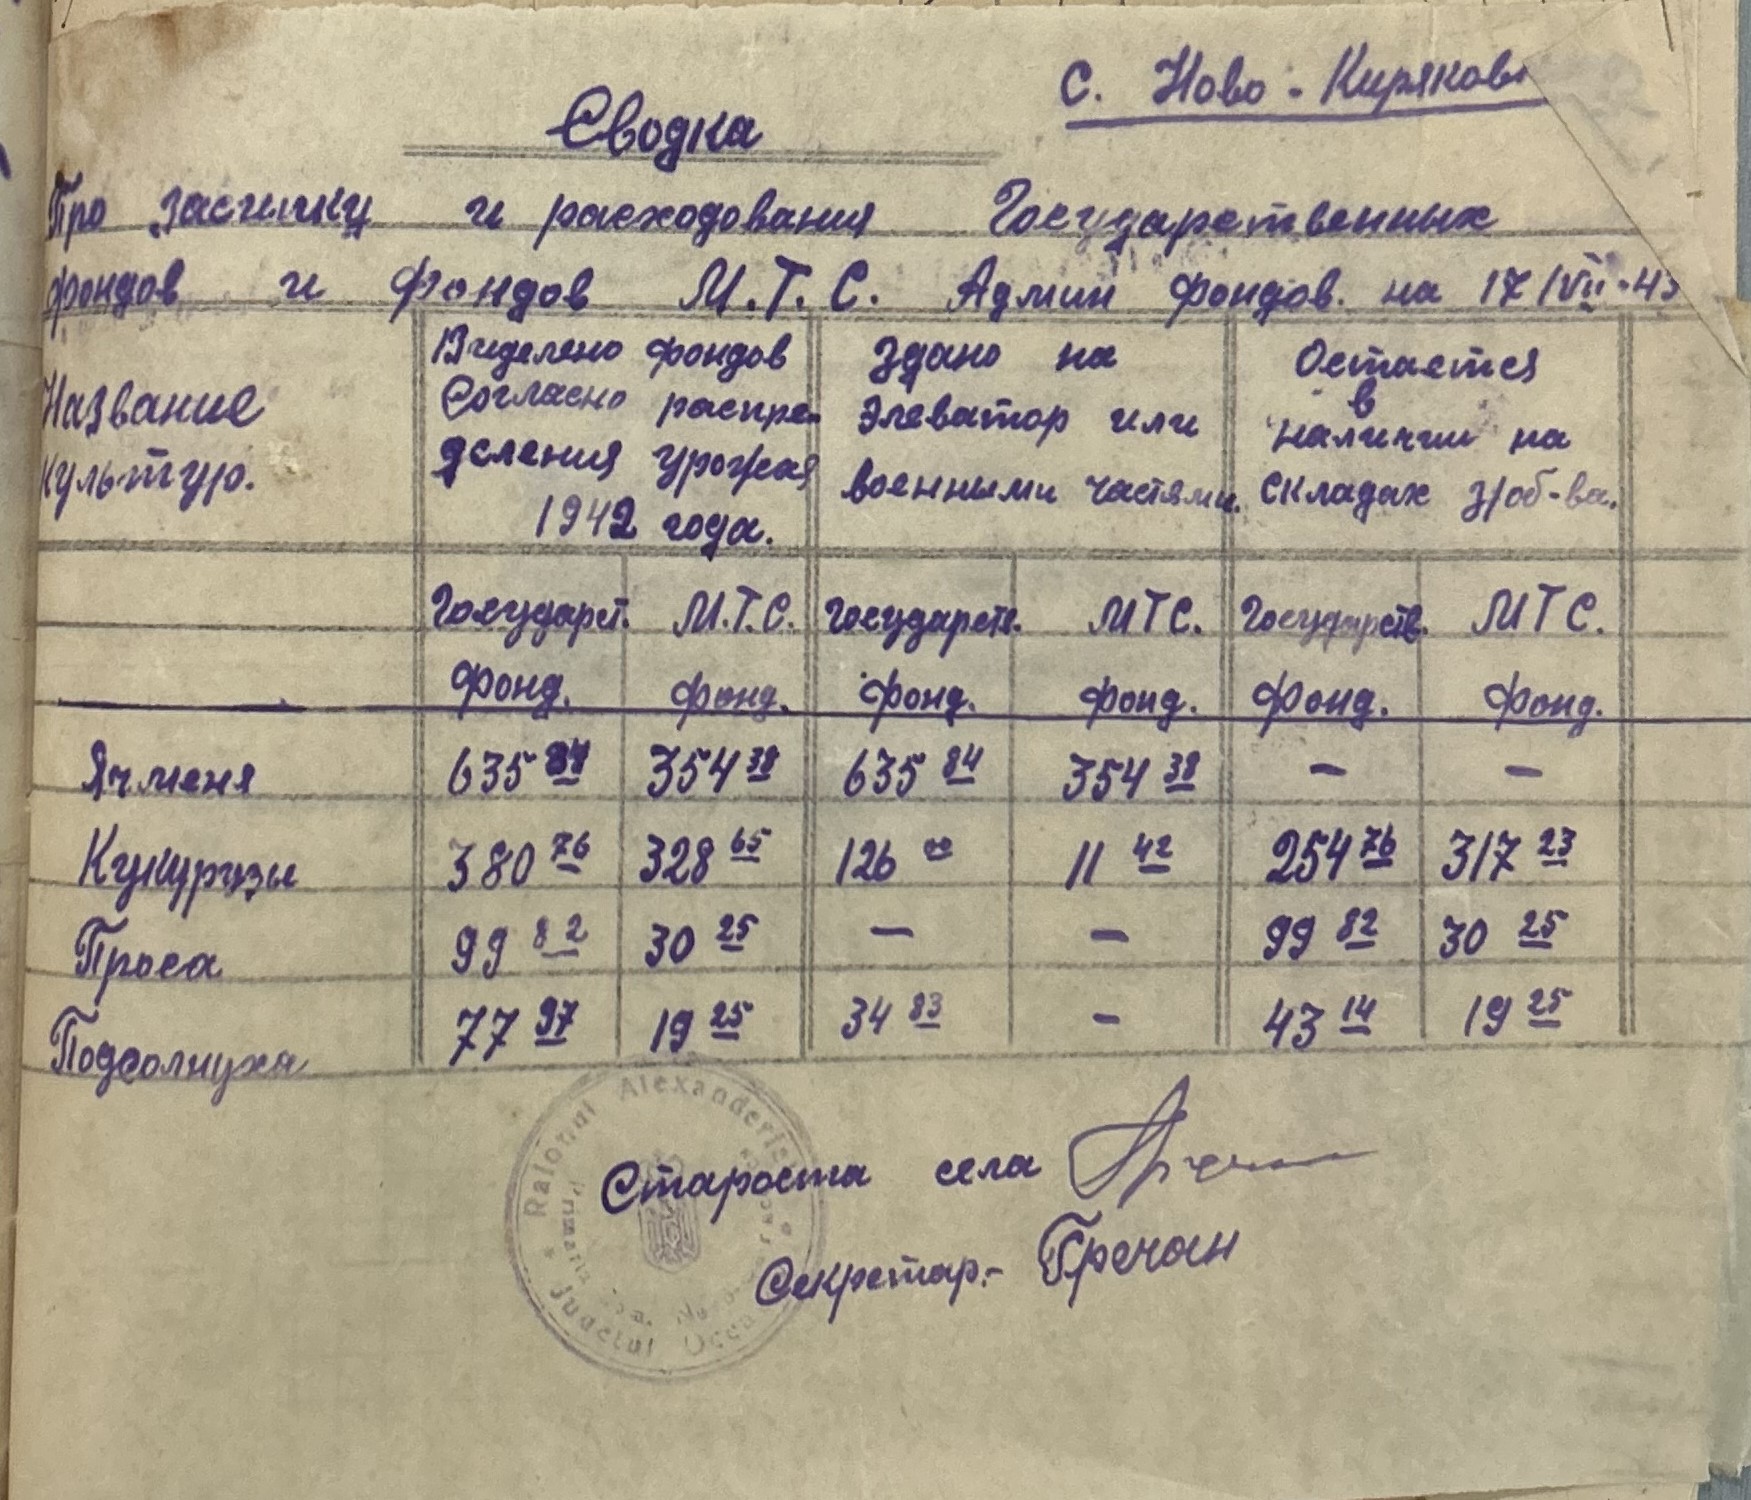 с. Ново-Киряков
Сводка
Про засипку и расходования Государственных
фондов и фондов М.Т.С. Админ фондов. на 17/VII-43
Название культур.
Виделено фондов Согласно распределения урожая 1942 года.
Здано на элеватор или военными частями.
Остается в наличии на складах з/об-ва.
Государст. фонд. М.Т.С. фонд. Государств. фонд. МТС. фонд. Государств. фонд. МТС. фонд.
Ячменя 635 84 354 38 635 84 354 38 – –
Кукурузы 380 76 328 65 126 00 11 42 254 76 317 23
Проса 99 82 30 25 – – 99 82 30 25
Подсолнуха 77 97 19 25 34 83 – 43 14 19 25
Староста села
Секретар.- Гречан
Raionul Alexander
Judetul Ocea